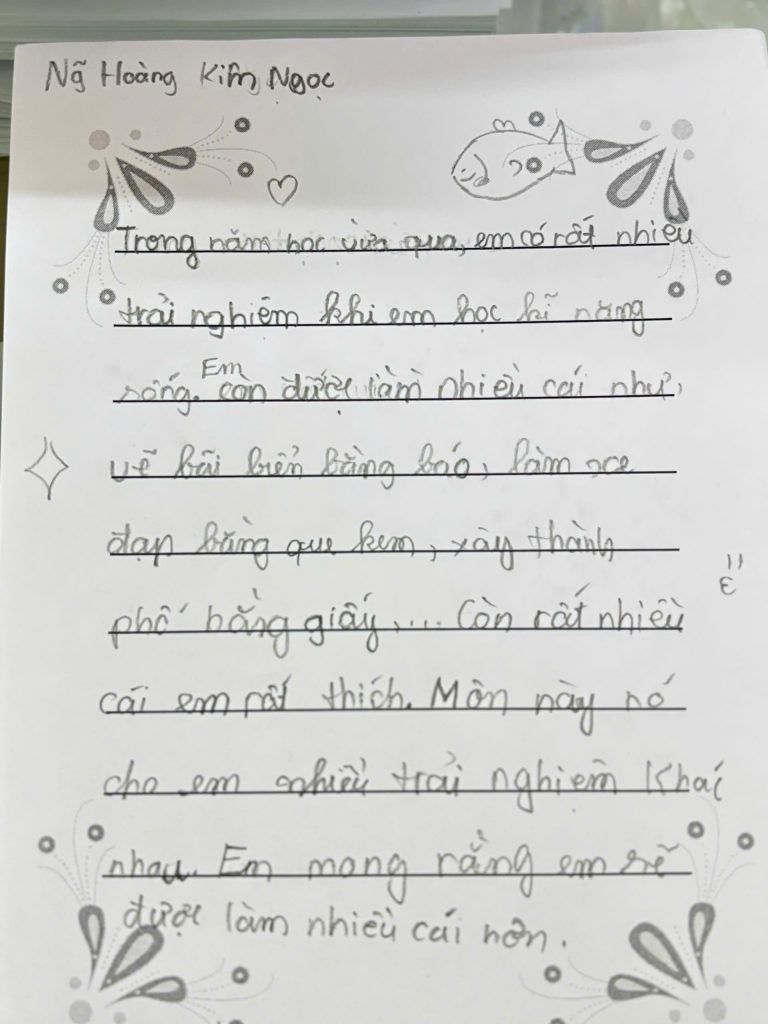 Ng̃ Hoàng Kim Ngọc
Trong năm học vừa qua, em có rất nhiều
trải nghiệm khi em học kĩ năng
sống. Em còn được làm nhiều cái như,
vẽ bãi biển bằng báo, làm xe
đạp bằng que kem, xây thành
phố bằng giấy,... Còn rất nhiều
cái em rất thích. Môn này nó
cho em nhiều trải nghiệm khác
nhau. Em mong rằng em sẽ
được làm nhiều cái hơn.